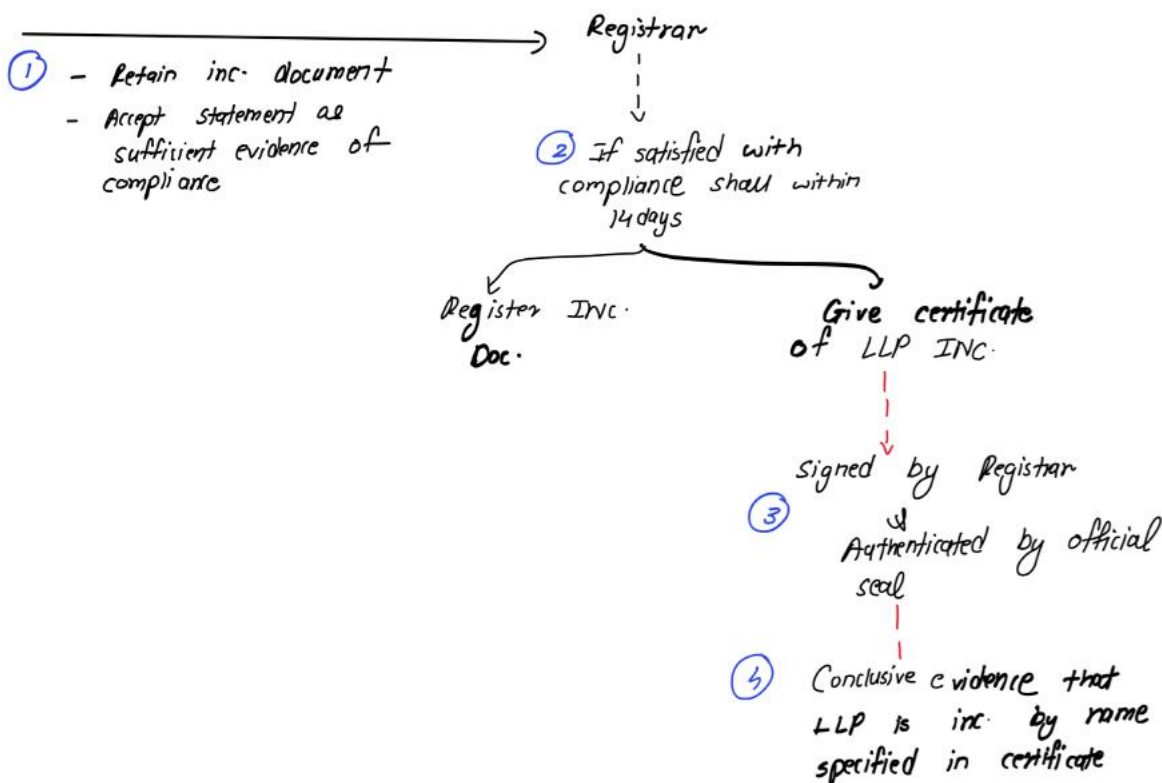 Registrar
1 - Retain inc. document
- Accept statement as
sufficient evidence of
compliance
2 If satisfied with
compliance shall within
14 days
Register INC.
Doc.
Give certificate
of LLP INC.
signed by Registrar
3
Authenticated by official
seal
4 Conclusive evidence that
LLP is inc. by name
specified in certificate